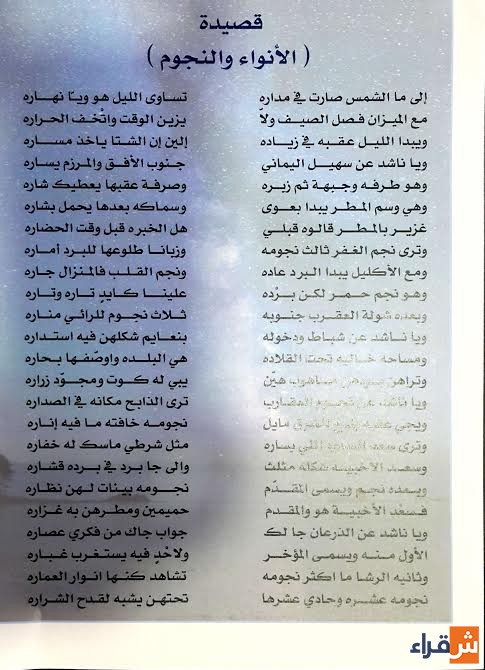 قصيدة
( الأنواء والنجوم )
إلى ما الشمس صارت في مداره تساوى الليل هو ويّا نهاره
مع الميزان فصل الصيف ولاّ يزين الوقت واتْخف الحراره
ويبدا الليل عقبه في زياده إلين إن الشتا ياخذ مساره
ويا ناشد عن سهيل اليماني جنوب الأفق والمرزم يساره
وهو طرفه وجبهة ثم زبره وصرفة عقبها يعطيك شاره
وهي وسم المطر يبدا بعوى وسماكه بعدها يحمل بشاره
غزير بالمطر قالوه قبلي هل الخبره قبل وقت الحضاره
وترى نجم الغفر ثالث نجومه وزبانا طلوعها للبرد أماره
ومع الأكليل يبدا البرد عاده ونجم القلب فالمنزال جاره
وهو نجم حمر لكن برْده علينا كايدٍ تاره وتاره
وبعده شولة العقرب جنوبه ثلاث نجوم للرائي مناره
ويا ناشد عن شباط ودخوله بنعايم شكلهن فيه استداره
ومساحه خاليه تحت القلاده هي البلده واوصّفها بحاره
وتراهن هيّن يبي له كوت ومجوّد زراره
ويا ناشد عن نجوم العقارب ترى الذابح مكانه في الصداره
ويجي عقبه مايل نجومه خافته ما فيه إناره
وترى سعد السعود اللي يساره مثل شرطي ماسك له خفاره
وسعد الأخبيه شكله مثلث والى جا برد في برده قشاره
وبعده نجم ويسمى المقدّم نجومه بينات لهن نظاره
فسعْد الأخبية هو والمقدم حميمين ومطرهن به غزاره
ويا ناشد عن الذرعان جا لك جواب جاك من فكري عصاره
الأول منه ويسمى المؤخر ولاحْدٍ فيه يستغرب غباره
وثانيه الرشا ما اكثر نجومه تشاهد كنها انوار العماره
نجومه عشره وحادي عشرها تحتهن يشبه لقدح الشراره
شقراء